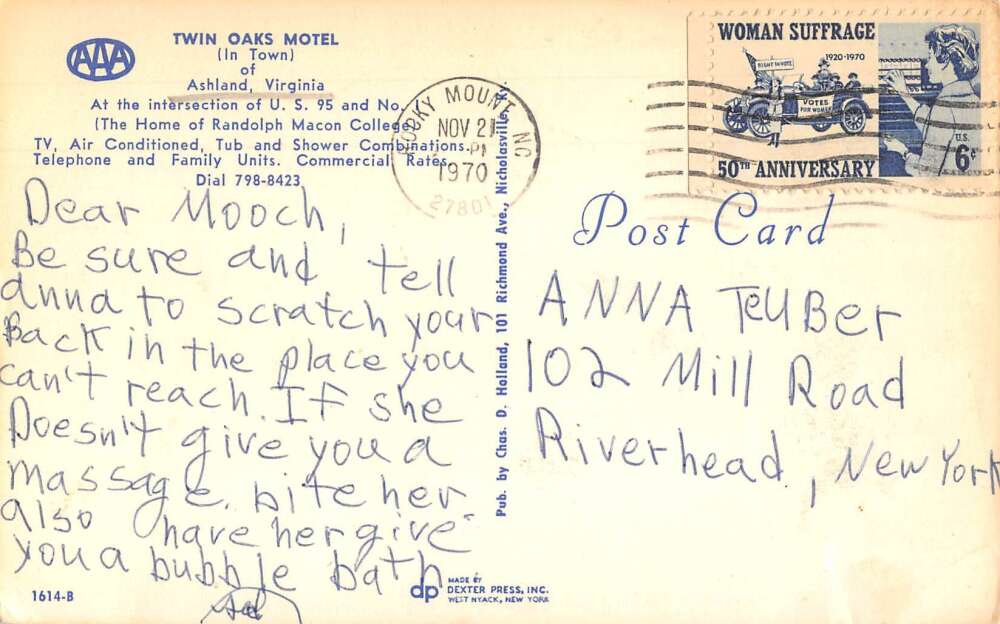 AAA
TWIN OAKS MOTEL
(In Town)
of
Ashland, Virginia
At the intersection of U. S. 95 and No.
(The Home of Randolph Macon College
TV, Air Conditioned, Tub and Shower Combinations.
Telephone and Family Units. Commercial Rates.
Dial 798-8423
Dear Mooch,
Be sure and tell
anna to scratch your
Back in the place you
can't reach. If she
Doesn't give you a
massage, bite her
also have her give
you a bubble bath
1614-B
Pub. by Chas. D. Holland, 101 Richmond Ave., Nicholasville,
MADE BY
dp DEXTER PRESS, INC.
WEST NYACK, NEW YORK
ROCKY MOUNT NC
NOV 21
PM
1970
27801
WOMAN SUFFRAGE
1920-1970
VOTES
FOR WOMEN
U.S.
6¢
50TH ANNIVERSARY
Post Card
ANNA TeuBer
102 Mill Road
Riverhead, New York